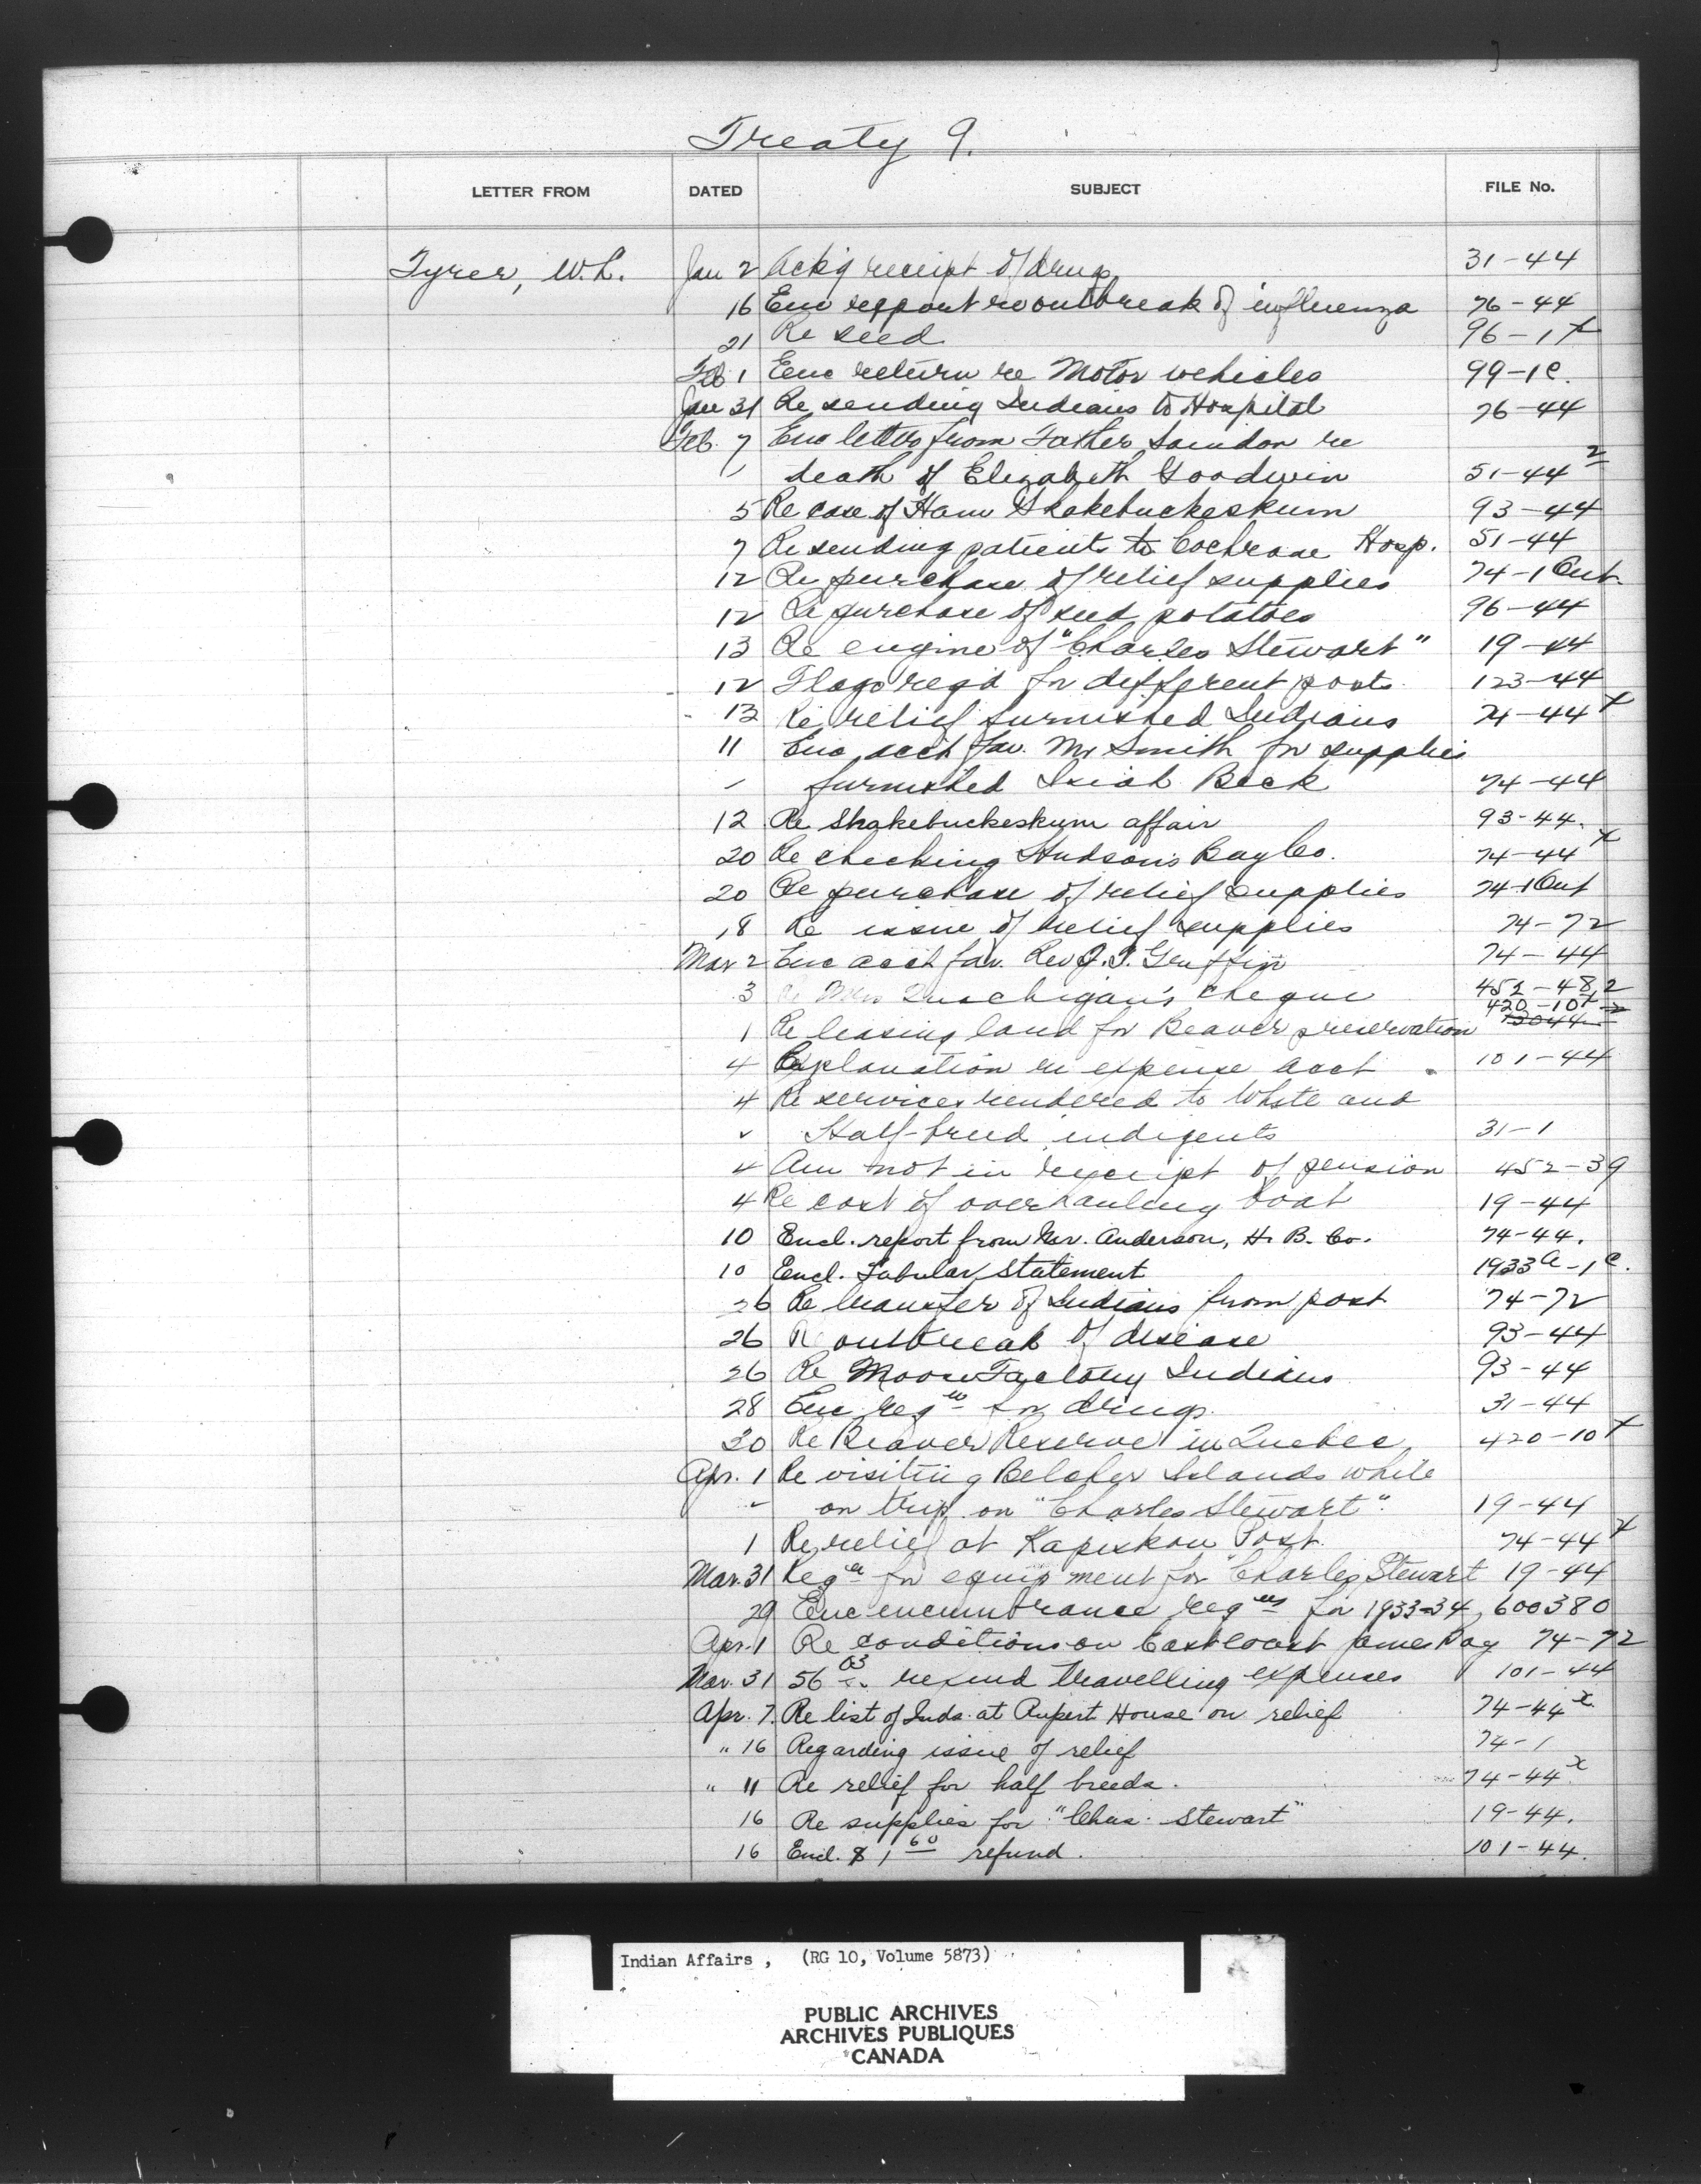 Treaty 9.
LETTER FROM DATED SUBJECT FILE No.
Tyrer, W.L. Jan 2 Ack'g receipt of drugs 31-44
16 Enc report re outbreak of influenza 76-44
21 Re seed 96-1 x
Feb 1 Enc return re Motor vehicles 99-1c.
Jan 31 Re sending Indians to Hospital 76-44
Feb. 7 Enc letter from Father Saindon re
death of Elizabeth Goodwin 51-44 2
5 Re case of Shakebuckeskum 93-44
7 Re sending patients to Cochrane Hosp. 51-44
12 Re purchase of relief supplies 74-1 Ont.
12 Re purchase of seed potatoes 96-44
13 Re engine of "Charles Stewart" 19-44
12 Flags reqd for different posts 123-44
13 Re relief furnished Indians 74-44 x
11 Enc acct fav. Mr Smith for supplies
" furnished Isiah Beck 74-44
12 Re Shakebuckeskum affair 93-44.
20 Re checking Hudson's Bay Co. 74-44 x
20 Re purchase of relief supplies 74-1 Ont
18 Re issue of relief supplies 74-72
Mar 2 Enc acct fav. Rev J.T. Griffin 74-44
3 Re Mrs cheque 452-482
1 Re leasing land for Beaver preservation 420-10 x
4 Explanation re expense acct 101-44
4 Re services rendered to White and
" Half-breed indigents 31-1
4 Am not in receipt of pension 452-39
4 Re cost of overhauling boat 19-44
10 Encl. report from Mr. Anderson, H. B. Co. 74-44.
10 Encl. Tabular Statement 1933A-1c.
26 Re transfer of Indians from post 74-72
26 Re outbreak of disease 93-44
26 Re Moose Factory Indians 93-44
28 Enc reqn for drugs 31-44
30 Re Beaver Reserve in Quebec 420-10 x
Apr. 1 Re visiting Belcher Islands while
" on trip on "Charles Stewart". 19-44
1 Re relief at Kapiskau Post. 74-44 x
Mar. 31 Reqn for equipment for "Charles Stewart 19-44
29 Enc encumbrance reqns for 1933-34, 600380
Apr. 1 Re conditions on East coast James Bay 74-72
Mar. 31 56 03 refund travelling expenses 101-44
Apr. 7. Re list of Inds. at Rupert House on relief 74-44 x
" 16 Regarding issue of relief 74-1
" 11 Re relief for half breeds. 74-44 x
16 Re supplies for "Chas. Stewart" 19-44.
16 Encl. $1 60 refund. 101-44.
Indian Affairs , (RG 10, Volume 5873)
PUBLIC ARCHIVES
ARCHIVES PUBLIQUES
CANADA